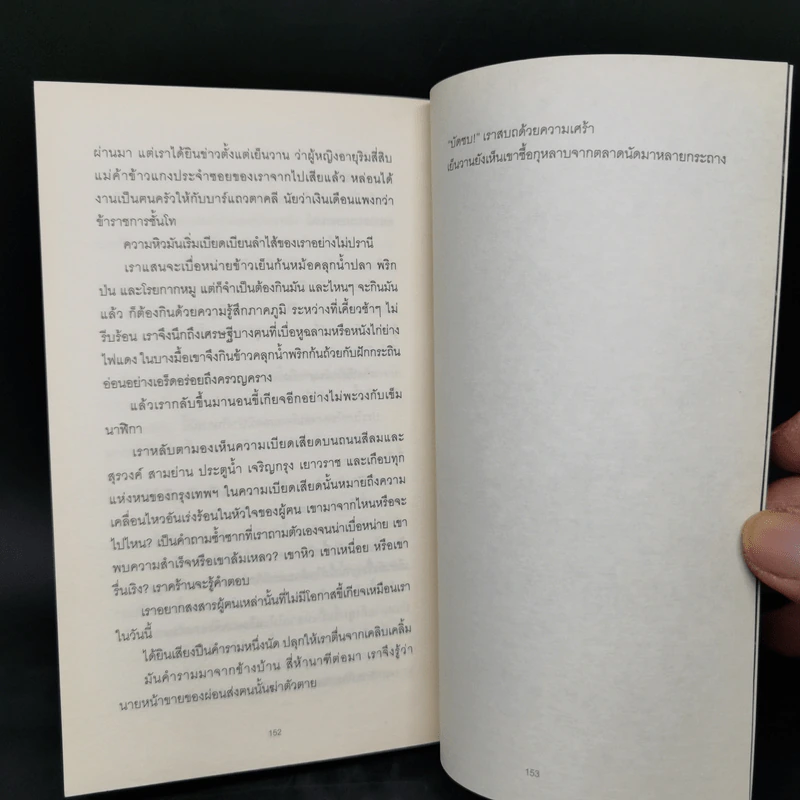 ผ่านมา แต่เราได้ยินข่าวตั้งแต่เย็นวาน ว่าผู้หญิงอายุริมสี่สิบ
แม่ค้าข้าวแกงประจำซอยของเราจากไปเสียแล้ว หล่อนได้
งานเป็นคนครัวให้กับบาร์แถวตาคลี นัยว่าเงินเดือนแพงกว่า
ข้าราชการชั้นโท
ความหิวมันเริ่มเบียดเบียนลำไส้ของเราอย่างไม่ปรานี
เราแสนจะเบื่อหน่ายข้าวเย็นก้นหม้อคลุกน้ำปลา พริก
ป่น และโรยกากหมู แต่ก็จำเป็นต้องกินมัน และไหนๆ จะกินมัน
แล้ว ก็ต้องกินด้วยความรู้สึกภาคภูมิ ระหว่างที่เคี้ยวช้าๆ ไม่
รีบร้อน เราจึงนึกถึงเศรษฐีบางคนที่เบื่อหูฉลามหรือหนังไก่ย่าง
ไฟแดง ในบางมื้อเขาจึงกินข้าวคลุกน้ำพริกก้นถ้วยกับฝักกระถิน
อ่อนอย่างเอร็ดอร่อยถึงครวญคราง
แล้วเรากลับขึ้นมานอนขี้เกียจอีกอย่างไม่พะวงกับเข็ม
นาฬิกา
เราหลับตามองเห็นความเบียดเสียดบนถนนสีลมและ
สุรวงค์ สามย่าน ประตูน้ำ เจริญกรุง เยาวราช และเกือบทุก
แห่งหนของกรุงเทพฯ ในความเบียดเสียดนั้นหมายถึงความ
เคลื่อนไหวอันเร่งร้อนในหัวใจของผู้คน เขามาจากไหนหรือจะ
ไปไหน? เป็นคำถามซ้ำซากที่เราถามตัวเองจนน่าเบื่อหน่าย เขา
พบความสำเร็จหรือเขาล้มเหลว? เขาหิว เขาเหนื่อย หรือเขา
รื่นเริง? เราคร้านจะรู้คำตอบ
เราอยากสงสารผู้คนเหล่านั้นที่ไม่มีโอกาสขี้เกียจเหมือนเรา
ในวันนี้
ได้ยินเสียงปืนคำรามหนึ่งนัด ปลุกให้เราตื่นจากเคลิบเคลิ้ม
มันคำรามมาจากข้างบ้าน สี่ห้านาทีต่อมา เราจึงรู้ว่า
นายหน้าขายของผ่อนส่งคนนั้นฆ่าตัวตาย
152
"บัดซบ!" เราสบถด้วยความเศร้า
เย็นวานยังเห็นเขาซื้อกุหลาบจากตลาดนัดมาหลายกระถาง
153